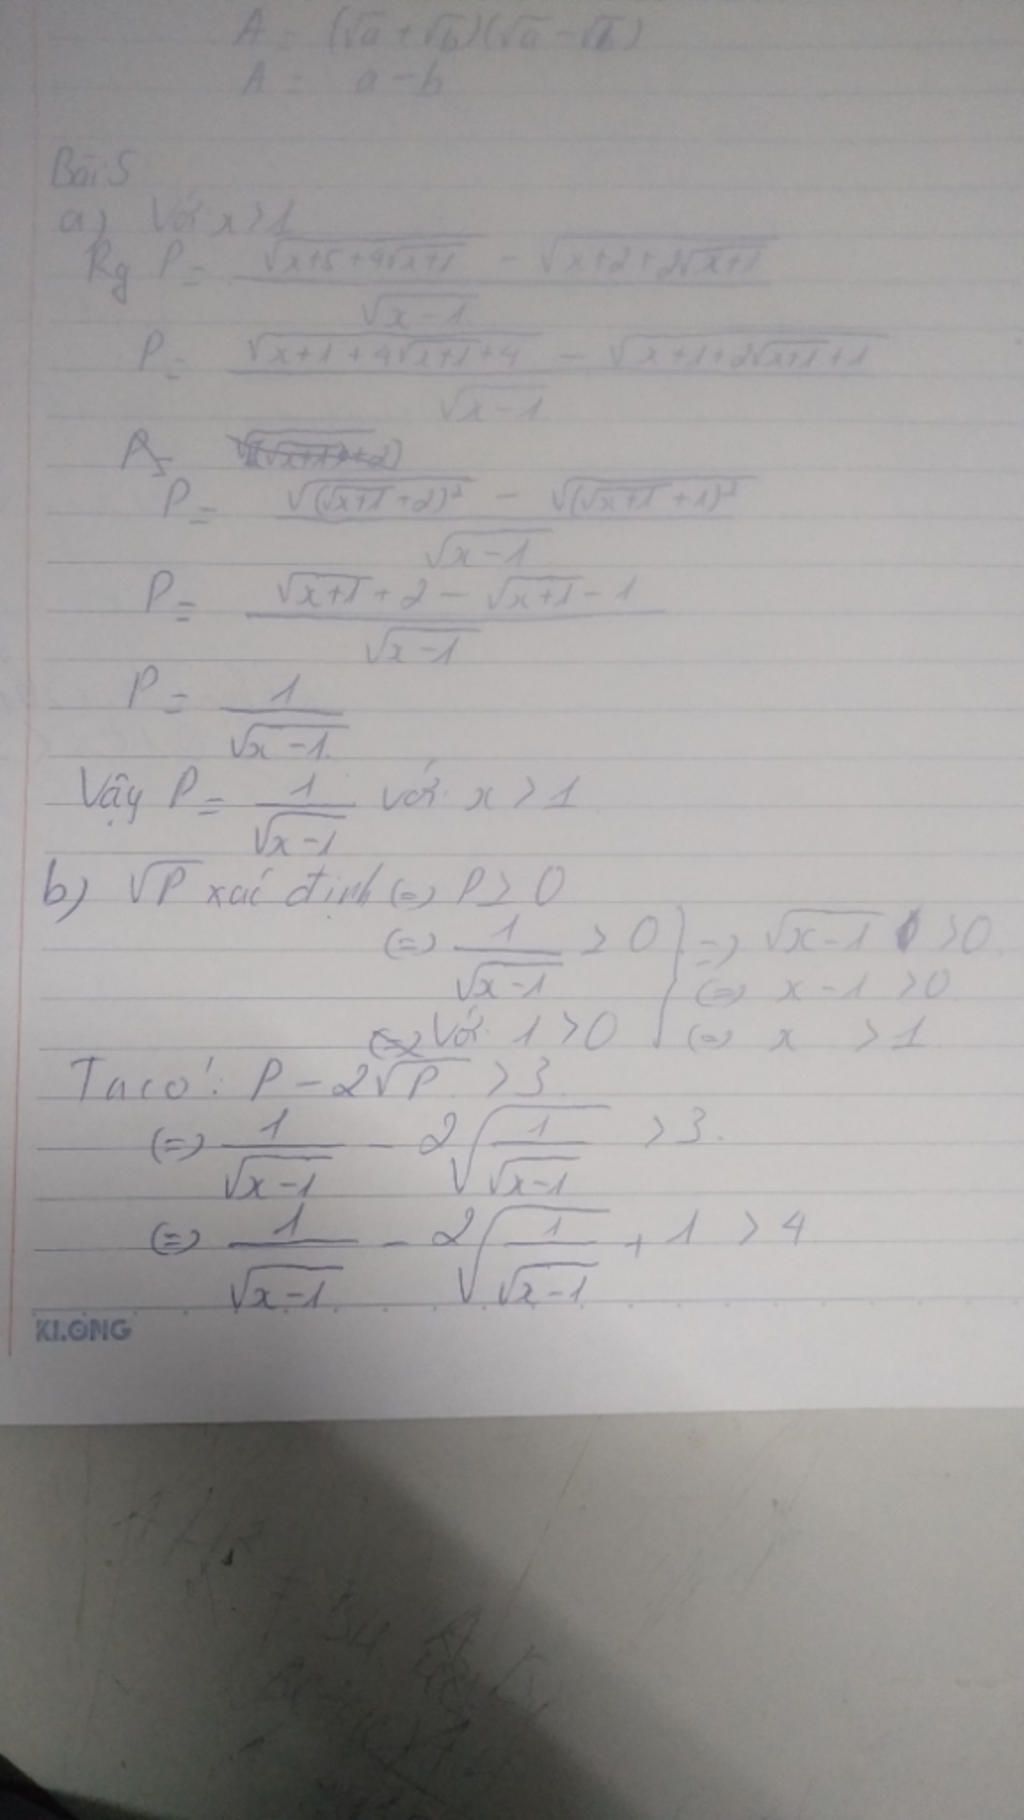 A = (√a + √b)(√a - √b)
A = a - b
Bài 5
a) Với x > 1
Rg P = (√(x+5+4√(x+1)) - √(x+2+2√(x+1))) / √(x-1)
P = (√(x+1+4√(x+1)+4) - √(x+1+2√(x+1)+1)) / √(x-1)
P = (√((√(x+1)+2)²) - √((√(x+1)+1)²)) / √(x-1)
P = (√(x+1) + 2 - √(x+1) - 1) / √(x-1)
P = 1 / √(x-1)
Vậy P = 1 / √(x-1) với x > 1
b) √P xác định (=) P ≥ 0
(=) 1 / √(x-1) > 0 } =) √(x-1) > 0
(=) x - 1 > 0
Với 1 > 0 (=) x > 1
Ta có: P - 2√P > 3
(=) 1 / √(x-1) - 2√(1 / √(x-1)) > 3
(=) 1 / √(x-1) - 2√(1 / √(x-1)) + 1 > 4
KLONG